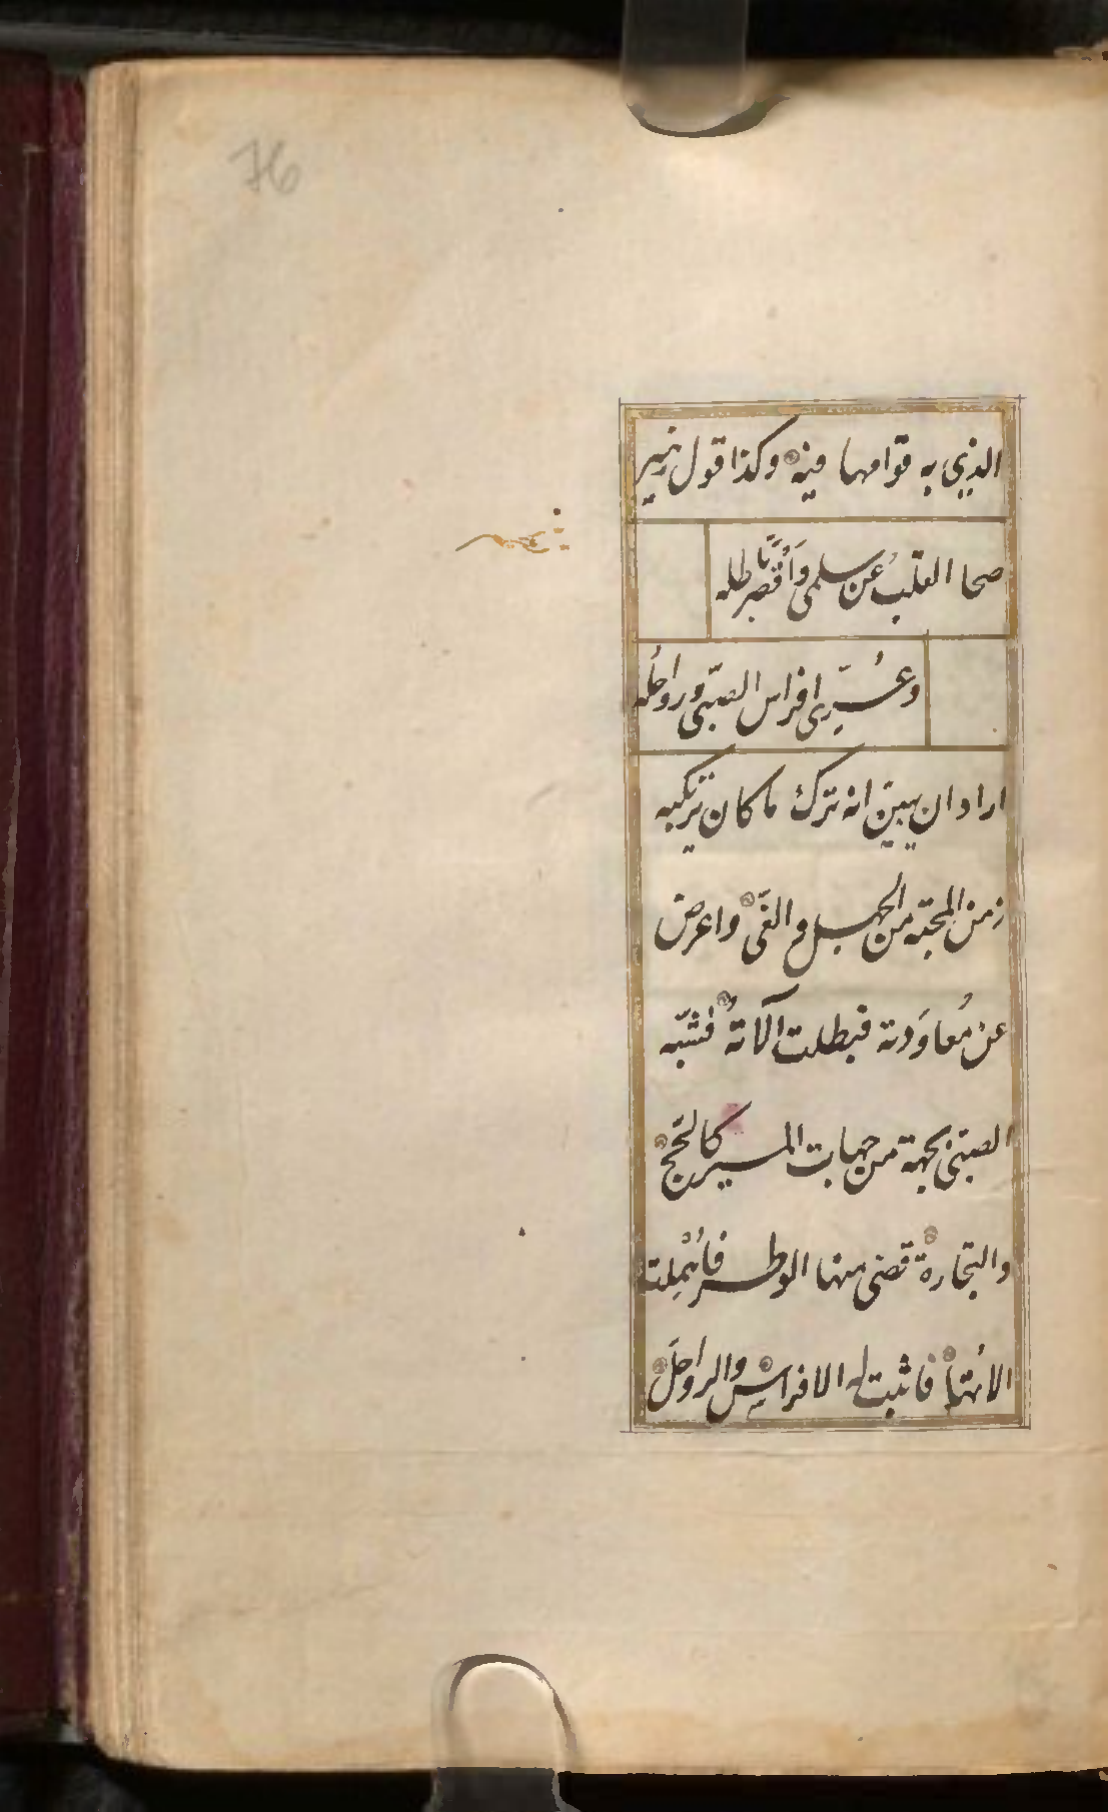 76
الذي به قوامها فيه وكذا قول زهير
صحا القلبُ عن سلمى وَأَقْصَر باطله
وعُرّى افراس الصبى ورواحله
اراد ان يبين انه ترك ما كان يرتكبه
زمن المحبّة من الجهل و الغَى واعرض
عن مُعاوَدته فبطلت آلاتهُ فشبّه
الصبى بجهة من جهات المسير كالحَجّ
والتجارة قضى منها الوطر فاُهْمِلت
الاتها فاثبت له الافراس والرواحلَ